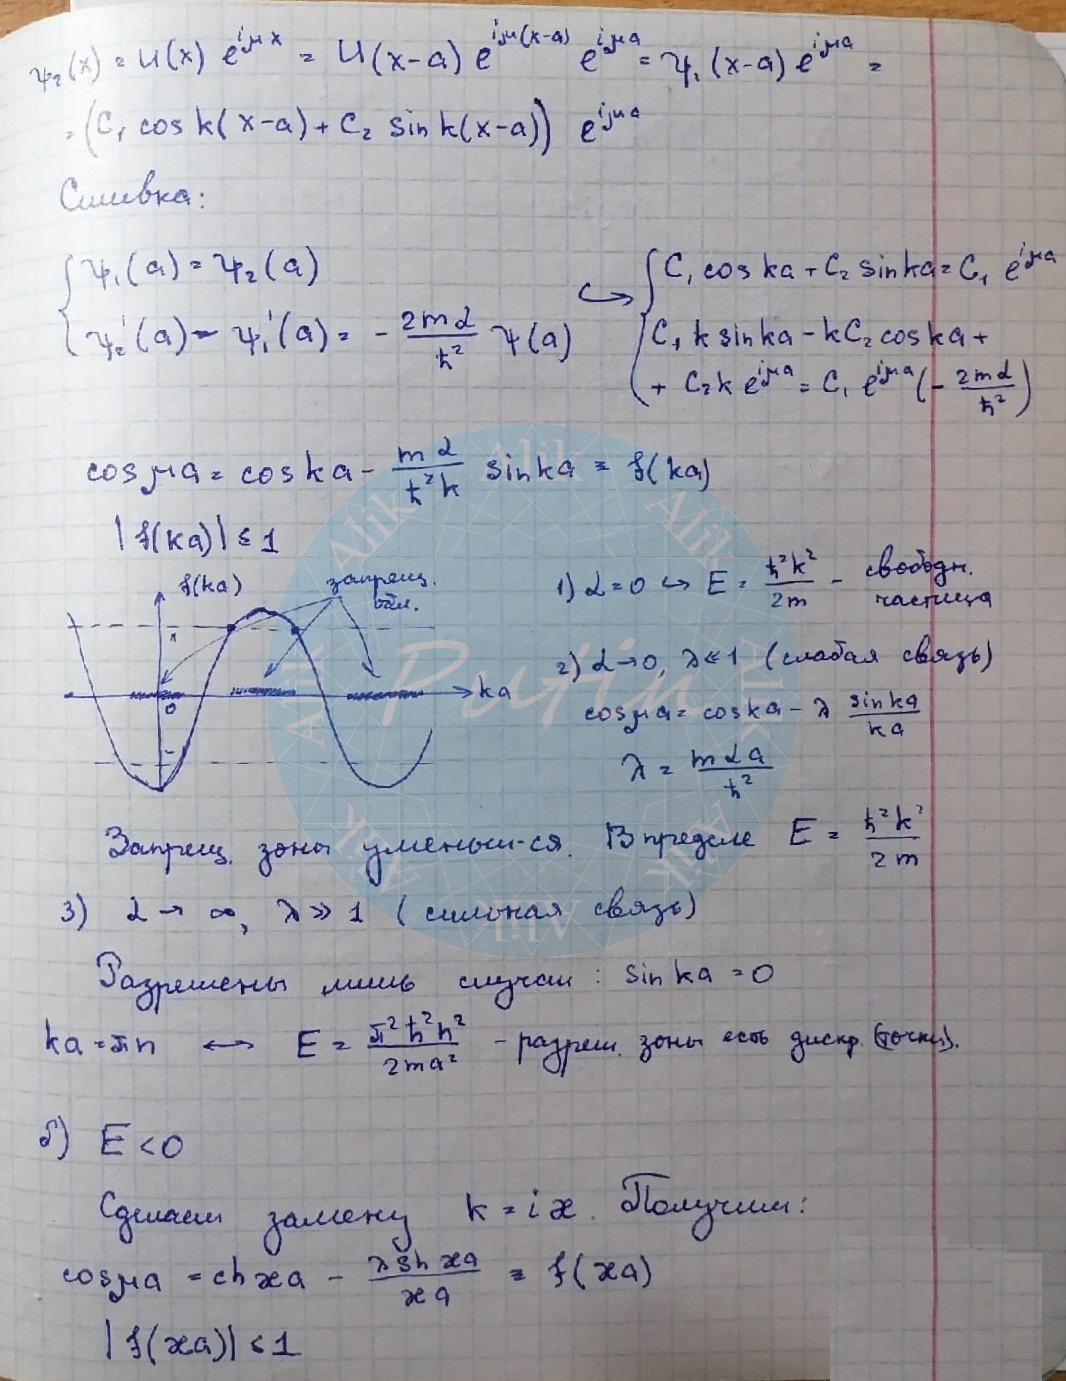 ψ₂(x) = U(x) e^{iμx} = U(x-a) e^{iμ(x-a)} e^{iμa} = ψ₁(x-a) e^{iμa} =
= (C₁ cos k(x-a) + C₂ sin k(x-a)) e^{iμa}
Сшивка:
{ ψ₁(a) = ψ₂(a)
ψ₂'(a) - ψ₁'(a) = - \frac{2mα}{ħ²} ψ(a)
↪ { C₁ cos ka + C₂ sin ka = C₁ e^{iμa}
C₁ k sin ka - k C₂ cos ka +
+ C₂ k e^{iμa} = C₁ e^{iμa} (- \frac{2mα}{ħ²})
cos μa = cos ka - \frac{mα}{ħ²k} sin ka = f(ka)
|f(ka)| ≤ 1
f(ka)
запрещ.
обл.
1
0
ka
1) α = 0 ↔ E = \frac{ħ²k²}{2m} - свободн.
частица
2) α → 0, λ ≪ 1 (слабая связь)
cos μa = cos ka - λ \frac{sin ka}{ka}
λ = \frac{mαa}{ħ²}
Запрещ. зоны уменьш-ся. В пределе E = \frac{ħ²k²}{2m}
3) α → ∞, λ ≫ 1 (сильная связь)
Разрешены лишь случаи: sin ka = 0
ka = πn ↔ E = \frac{π²ħ²n²}{2ma²} - разреш. зоны есть дискр. (точки).
б) E < 0
Сделаем замену k = iϰ. Получим:
cos μa = ch ϰa - \frac{λ sh ϰa}{ϰa} = f(ϰa)
|f(ϰa)| ≤ 1
Putin
Alik
Alik
Alik
Alik
Alik
Alik
Alik
Alik